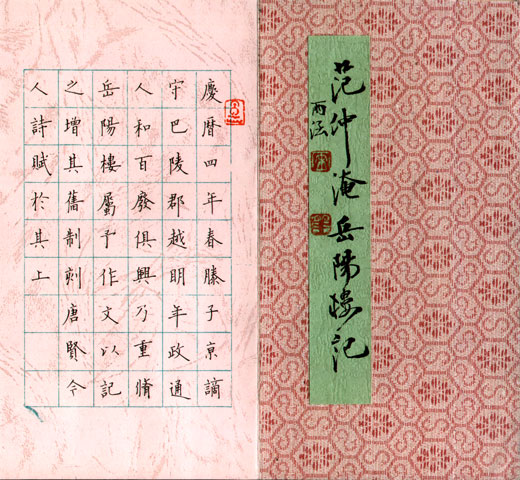 范仲淹岳陽樓記
慶暦四年春滕子京謫
守巴陵郡越明年政通
人和百廢俱興乃重脩
岳陽樓屬予作文以記
之增其舊制刻唐賢今
人詩賦於其上